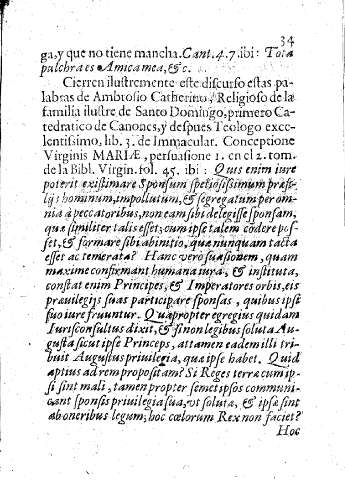 34
ga, y que no tiene mancha. Cant. 4. 7. ibi: Tota
pulchra es Amica mea, &c.
Cierren ilustremente este discurso estas pa-
labras de Ambrosio Catherino, Religioso de la
familia ilustre de Santo Domingo, primero Ca-
tedratico de Canones, y despues Teologo exce-
lentissimo, lib. 3. de Immacular. Conceptione
Virginis MARIÆ, persuasione 1. en el 2. tom.
de la Bibl. Virgin. fol. 45. ibi: Quis enim iure
poterit existimare Sponsum speciosissimum præ fi-
lijs hominum, impollutum, & segregatum per om-
nia à peccatoribus, non eam sibi delegisse sponsam,
quæ similiter talis esset; cum ipse talem condere pos-
set, & formare sibi ab initio, quæ nunquam tacta
esset ac temerata? Hanc vero suasionem, quam
maxime confirmant humana iura, & instituta,
constat enim Principes, & Imperatores orbis, eis
præuilegijs suas participare sponsas, quibus ipsi
suo iure fruuntur. Quapropter egregius quidam
Iurisconsultus dixit, & si non legibus soluta Au-
gusta sicut ipse Princeps, attamen eadem illi tri-
buit Augustus priuilegia, qua ipse habet. Quid
aptius ad rem propositam? Si Reges terræ cum ip-
si sint mali, tamen propter semetipsos communi-
cant sponsis priuilegia sua, vt soluta, & ipsæ sint
ab oneribus legum; hoc cœlorum Rex non faciet?
Hoc